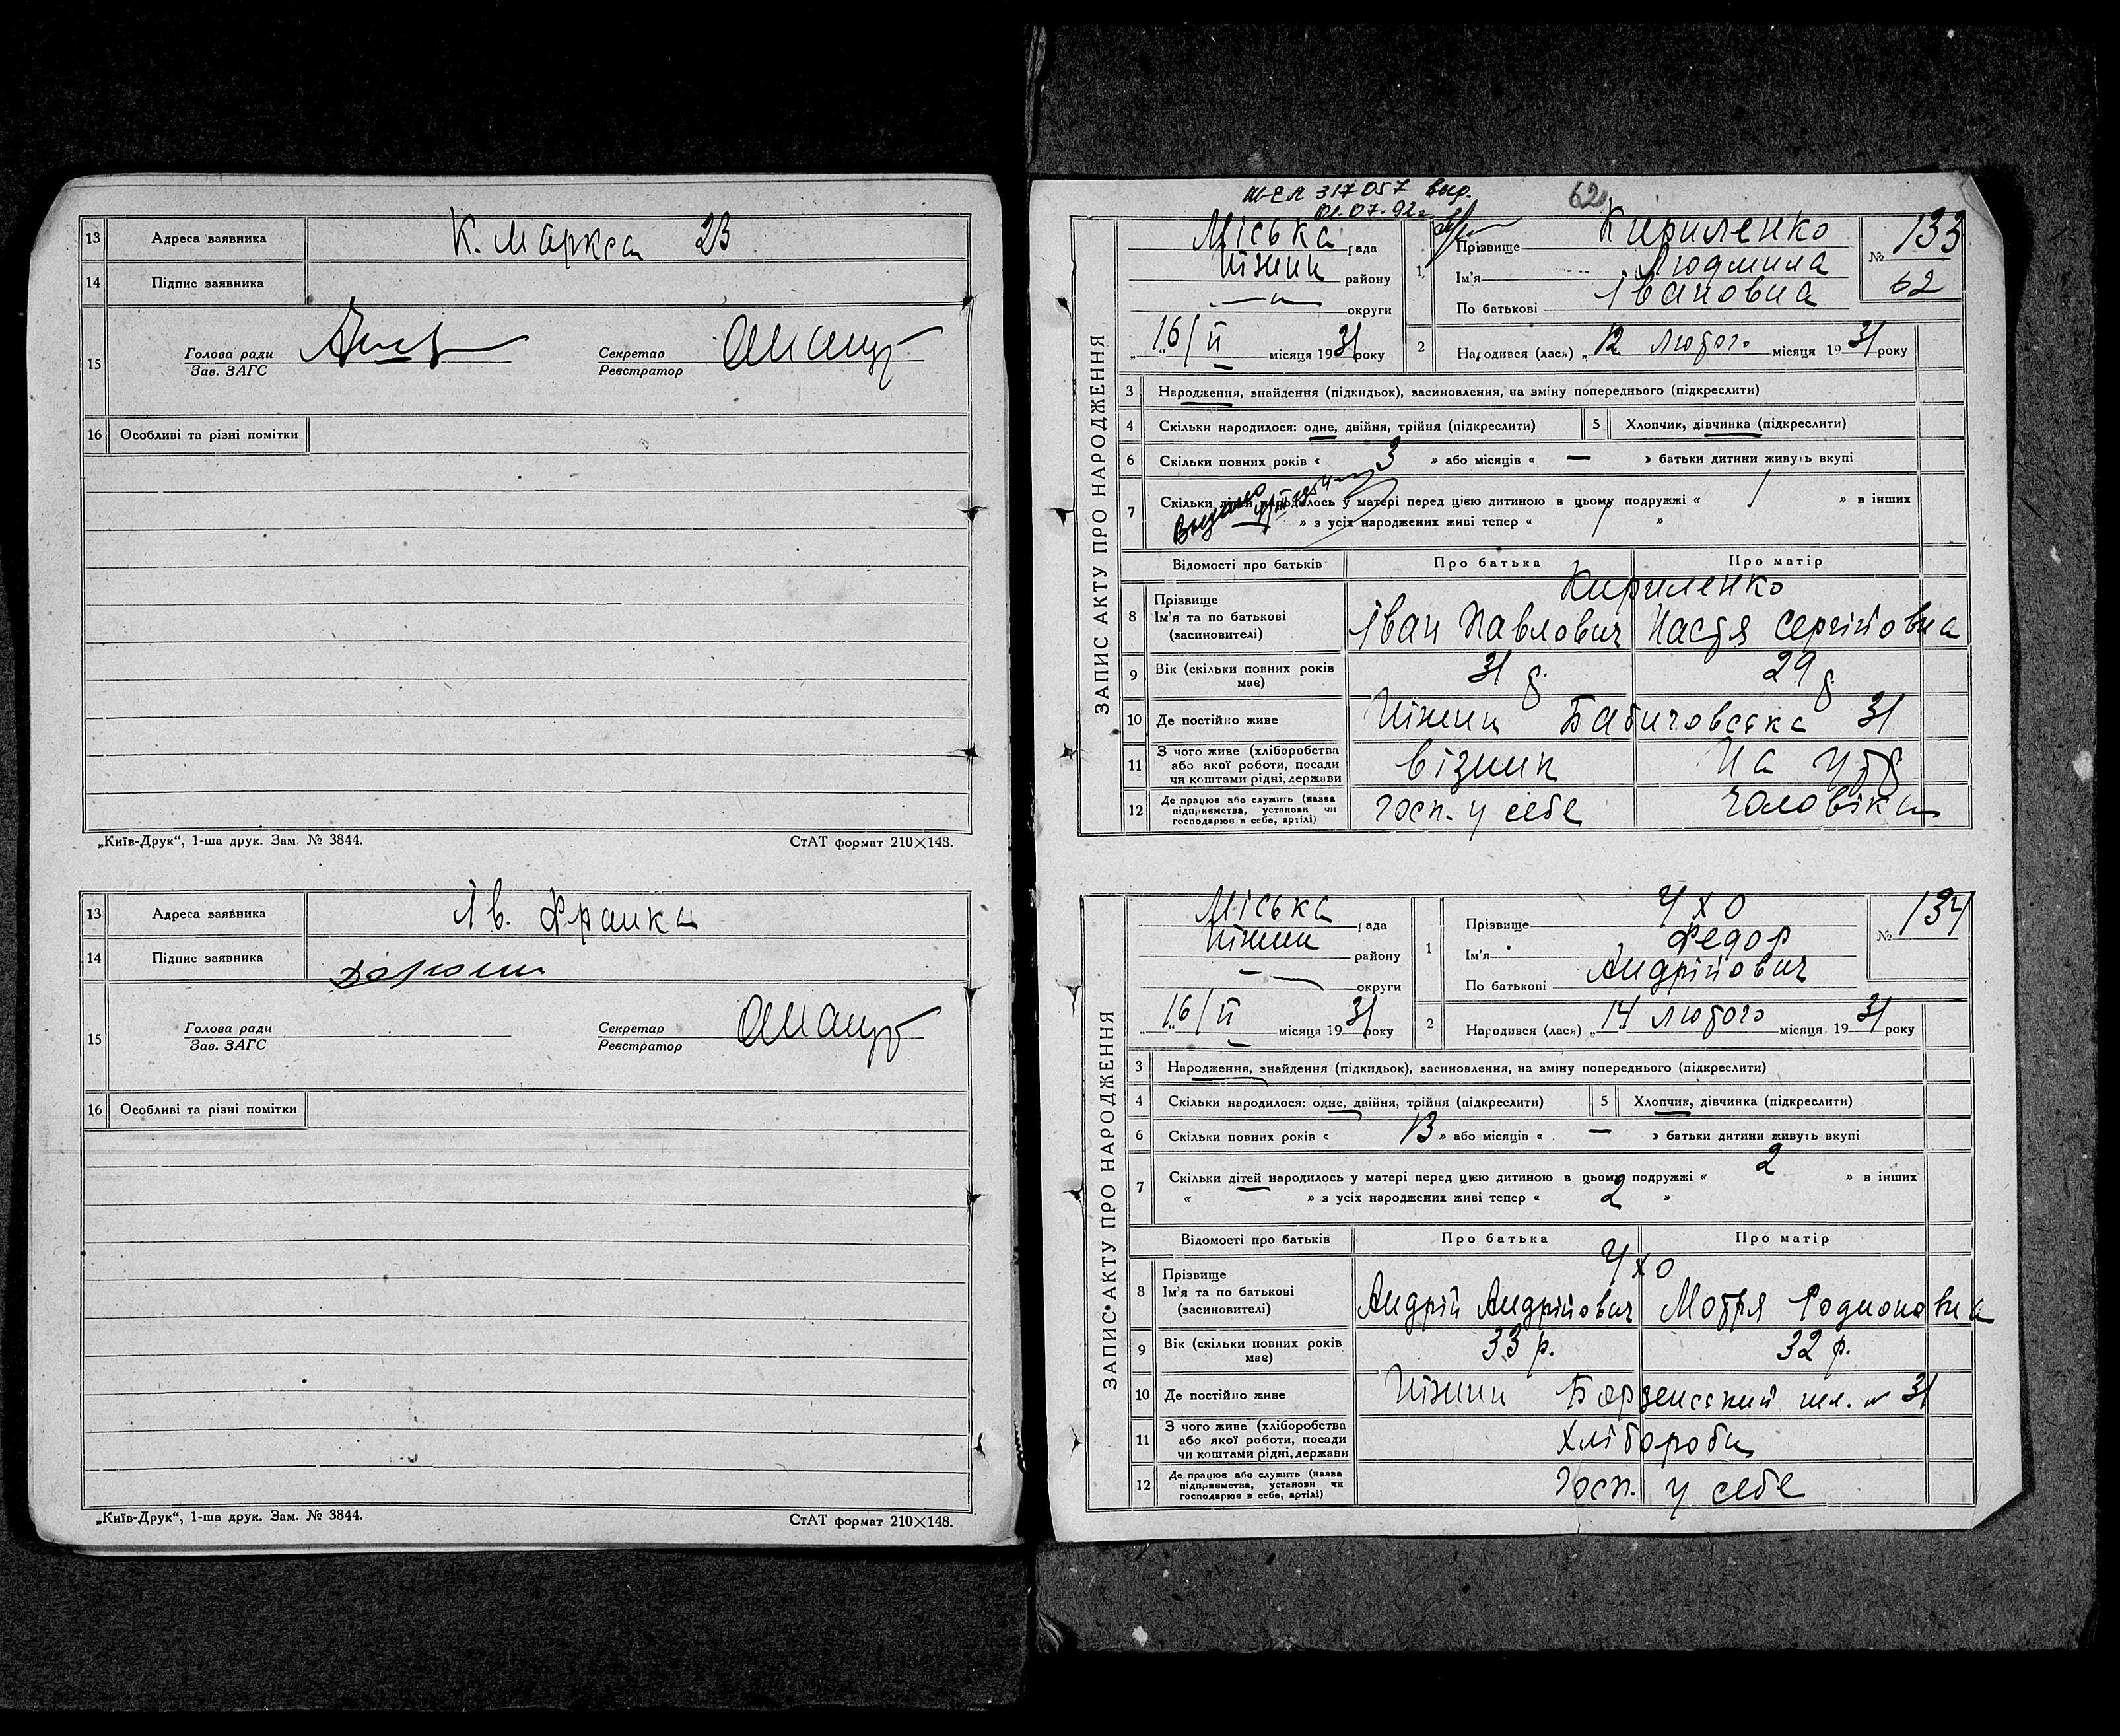 13 Адреса заявника К. Маркса 23
14 Підпис заявника
15 Голова ради Секретар
Зав. ЗАГС Реєстратор
16 Особливі та різні помітки
„Київ-Друк“, 1-ша друк. Зам. № 3844. СтАТ формат 210×148.
13 Адреса заявника Ів. Франка
14 Підпис заявника
15 Голова ради Секретар
Зав. ЗАГС Реєстратор
16 Особливі та різні помітки
„Київ-Друк“, 1-ша друк. Зам. № 3844. СтАТ формат 210×148.
317057 выд. 62
01.07.92г.
ЗАПИС АКТУ ПРО НАРОДЖЕННЯ
Міська рада
Ніжин району
округи
„16/II місяця 1931 року
1 Прізвище Кириленко
Ім'я Людмила
По батькові Івановна
№ 133
62
2 Народився (лася) „12 лютого місяця 1931 року
3 Народження, знайдення (підкидьок), засиновлення, на зміну попереднього (підкреслити)
4 Скільки народилося: одне, двійня, трійня (підкреслити) 5 Хлопчик, дівчинка (підкреслити)
6 Скільки повних років « 3 » або місяців « — » батьки дитини живуть вкупі
7 Скільки дітей народилось у матері перед цією дитиною в цьому подружжі « 1 » в інших
» з усіх народжених живі тепер « 1 »
Відомості про батьків Про батька Про матір
8 Прізвище Кириленко
Ім'я та по батькові Іван Павлович Настя Сергійовна
(засиновителі)
9 Вік (скільки повних років має) 31 р. 29 р.
10 Де постійно живе Ніжин Бабичовська 31
11 З чого живе (хліборобства або якої роботи, посади чи коштами рідні, держави візник На утр
12 Де працює або служить (назва підприємства, установи чи господарює в себе, артілі) госп. у себе чоловіка
ЗАПИС АКТУ ПРО НАРОДЖЕННЯ
Міська рада
Ніжин району
округи
„16/II місяця 1931 року
1 Прізвище Ухо
Ім'я Федор
По батькові Андрійович
№ 134
2 Народився (лася) „14 лютого місяця 1931 року
3 Народження, знайдення (підкидьок), засиновлення, на зміну попереднього (підкреслити)
4 Скільки народилося: одне, двійня, трійня (підкреслити) 5 Хлопчик, дівчинка (підкреслити)
6 Скільки повних років « 13 » або місяців « — » батьки дитини живуть вкупі
7 Скільки дітей народилось у матері перед цією дитиною в цьому подружжі « 2 » в інших
« » з усіх народжених живі тепер « 2 »
Відомості про батьків Про батька Про матір
8 Прізвище Ухо
Ім'я та по батькові Андрій Андрійович Мотря Родионовна
(засиновителі)
9 Вік (скільки повних років має) 33 р. 32 р.
10 Де постійно живе Ніжин Борзенський шл. № 31
11 З чого живе (хліборобства або якої роботи, посади чи коштами рідні, держави хлібороби
12 Де працює або служить (назва підприємства, установи чи господарює в себе, артілі) госп. у себе